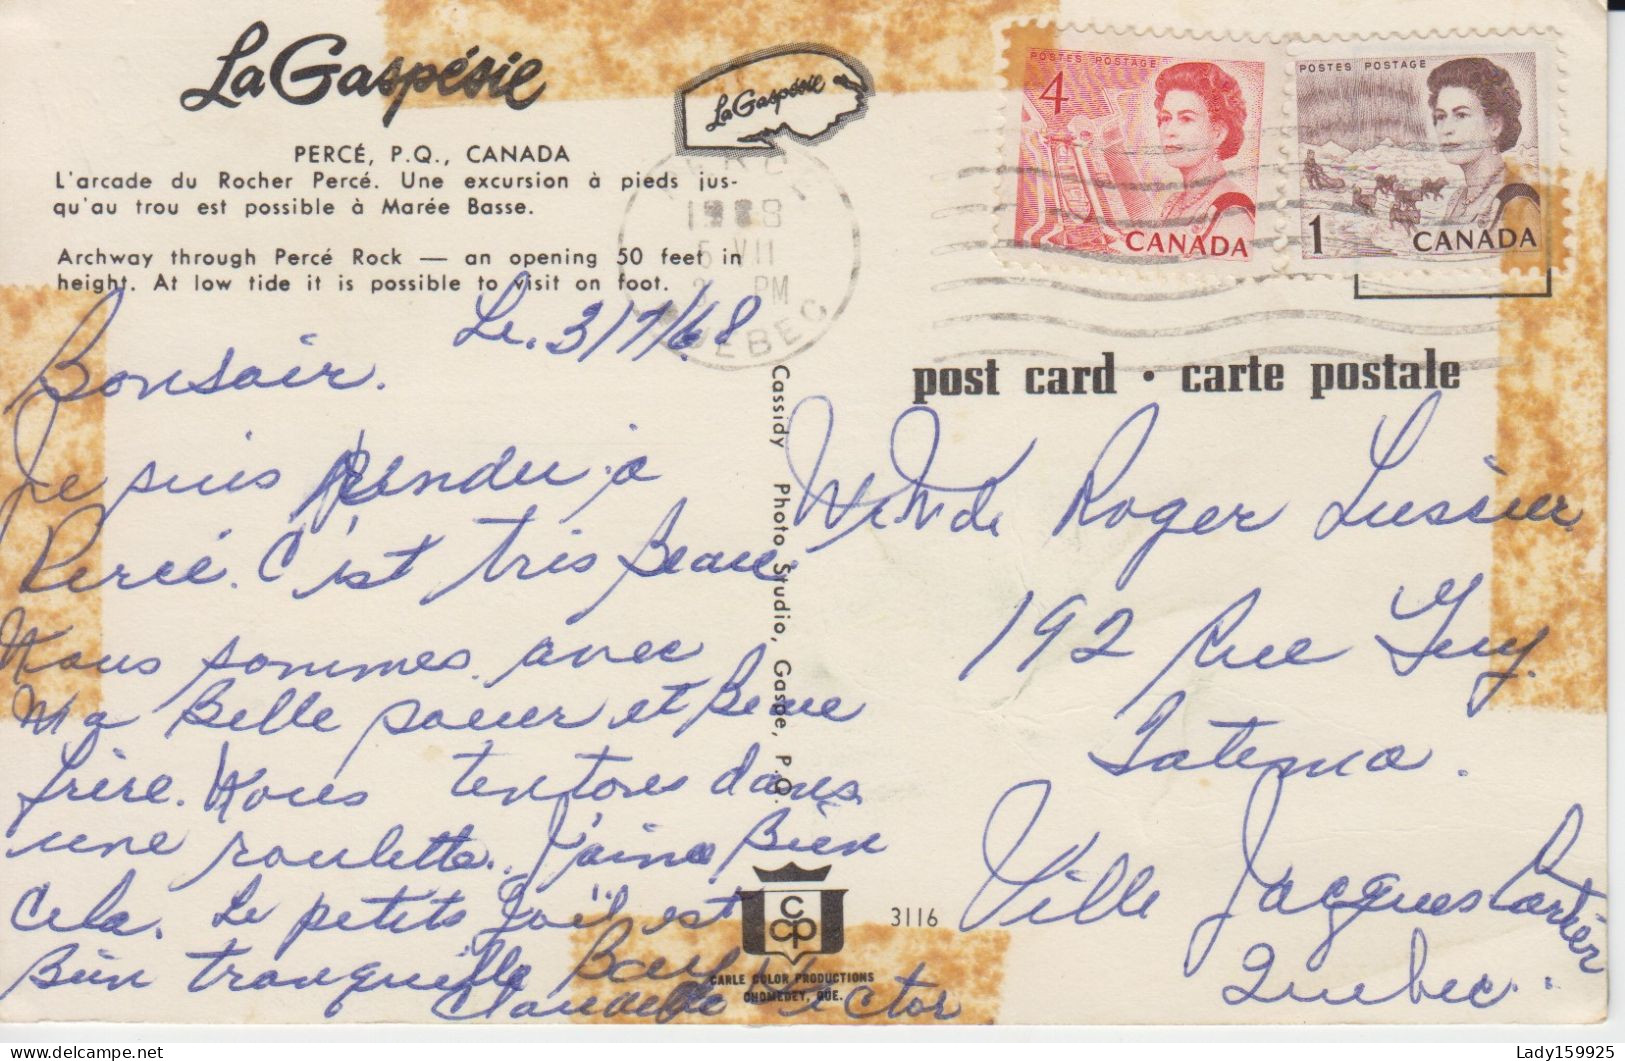 La Gaspésie
PERCÉ, P.Q., CANADA
L'arcade du Rocher Percé. Une excursion à pieds jus-
qu'au trou est possible à Marée Basse.
Archway through Percé Rock — an opening 50 feet in
height. At low tide it is possible to visit on foot.
La Gaspésie
1968
5 VII
PM
QUEBEC
POSTES POSTAGE
4
CANADA
POSTES POSTAGE
1
CANADA
post card • carte postale
Le. 3/7/68
Bonsoir.
Je suis rendu à
Percé. C'est très Beau
Nous sommes avec
Ma Belle soeur et Beau
frère. Nous tentons dans
une roulette. J'aime Bien
Cela. Le petits Joël est
Bien tranquille
Claudette Victor
Cassidy Photo Studio, Gaspe, P.Q.
Roger Lussier
192 Rue Guy.
Ville Jacques Cartier
Quebec.
C
CP
CARLE COLOR PRODUCTIONS
CHOMEDEY, QUE.
3116
Lady159925